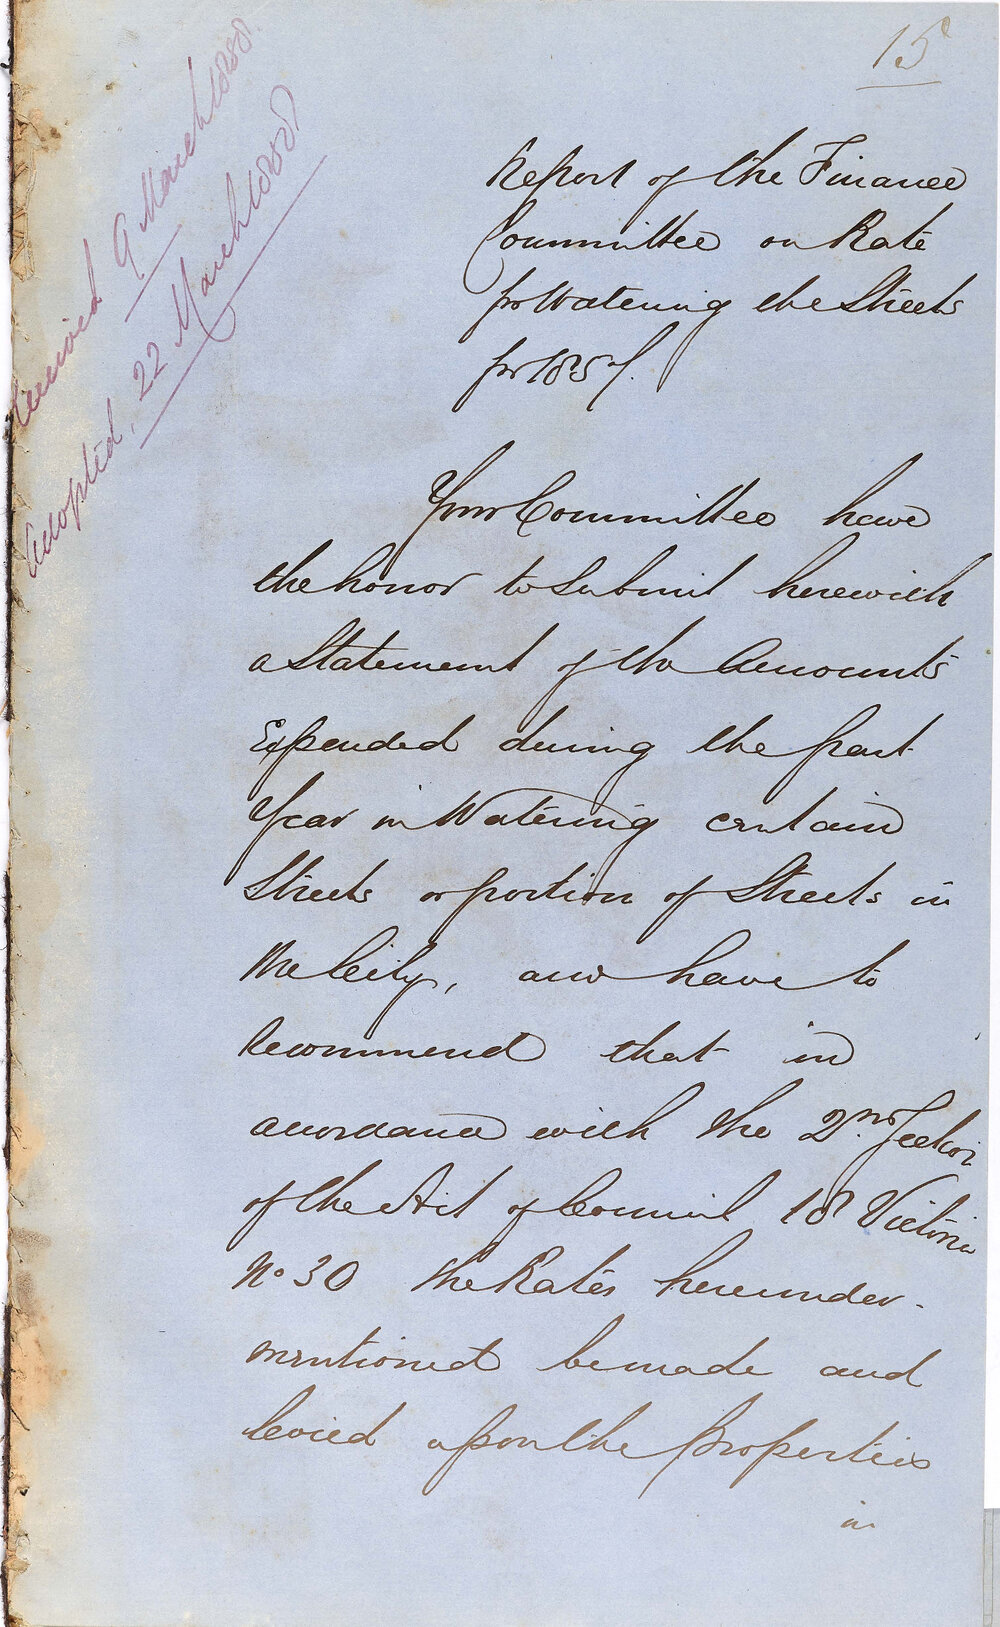 15
Received 9 March 1858
Adopted, 22 March 1858
Report of the Finance
Committee on Rate
for Watering the Streets
for 1857.
Your Committee have
the honor to submit herewith
a Statement of the Amounts
Expended during the past
Year in Watering certain
Streets or portion of Streets in
the City, and have to
recommend that in
accordance with the 2nd Section
of the Act of Council 18 Victoria
No 30 the Rates hereunder-
mentioned be made and
levied upon the Properties
in